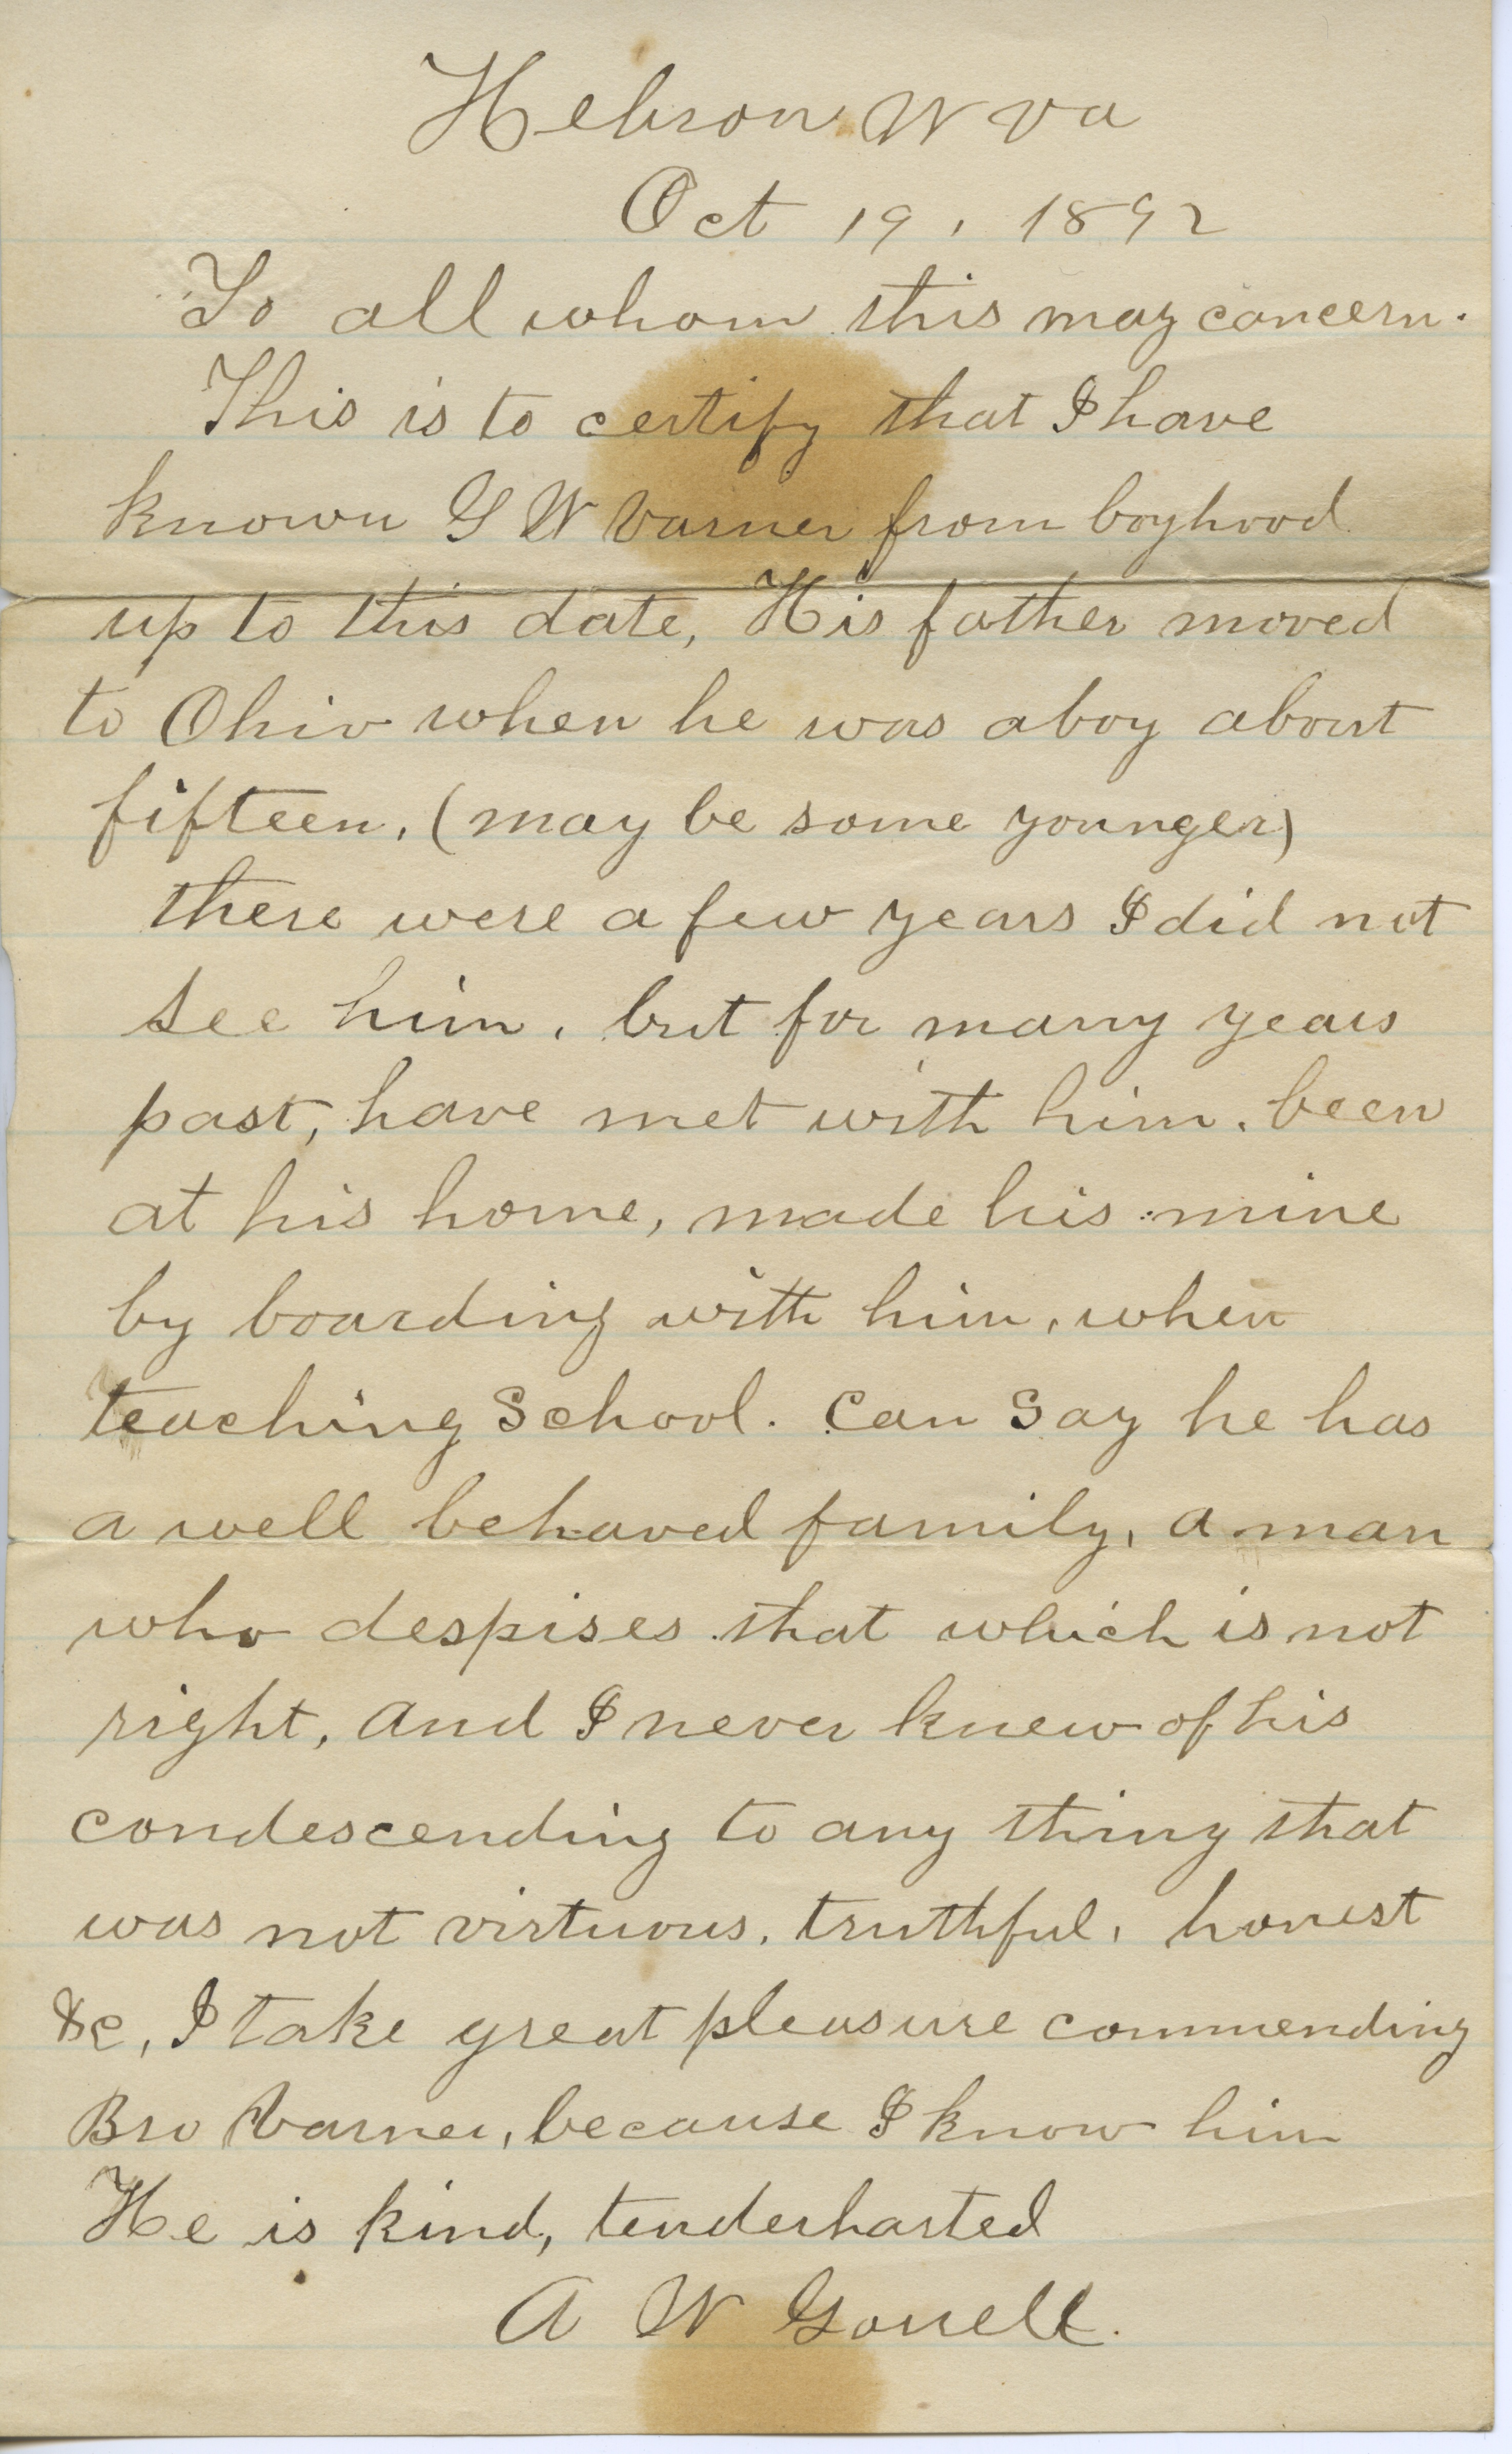 Hebron W Va
Oct 19, 1892
To all whom this may concern.
This is to certify that I have
known G W Varner from boyhood
up to this date, His father moved
to Ohio when he was a boy about
fifteen, (may be some younger)
there were a few years I did not
see him, but for many years
past, have met with him, been
at his home, made his mine
by boarding with him, when
teaching School. Can Say he has
a well behaved family, a man
who despises that which is not
right, and I never knew of his
condescending to any thing that
was not virtuous, truthful, honest
&c, I take great pleasure commending
Bro Varner, because I know him
He is kind, tenderharted
A W Gorrell.